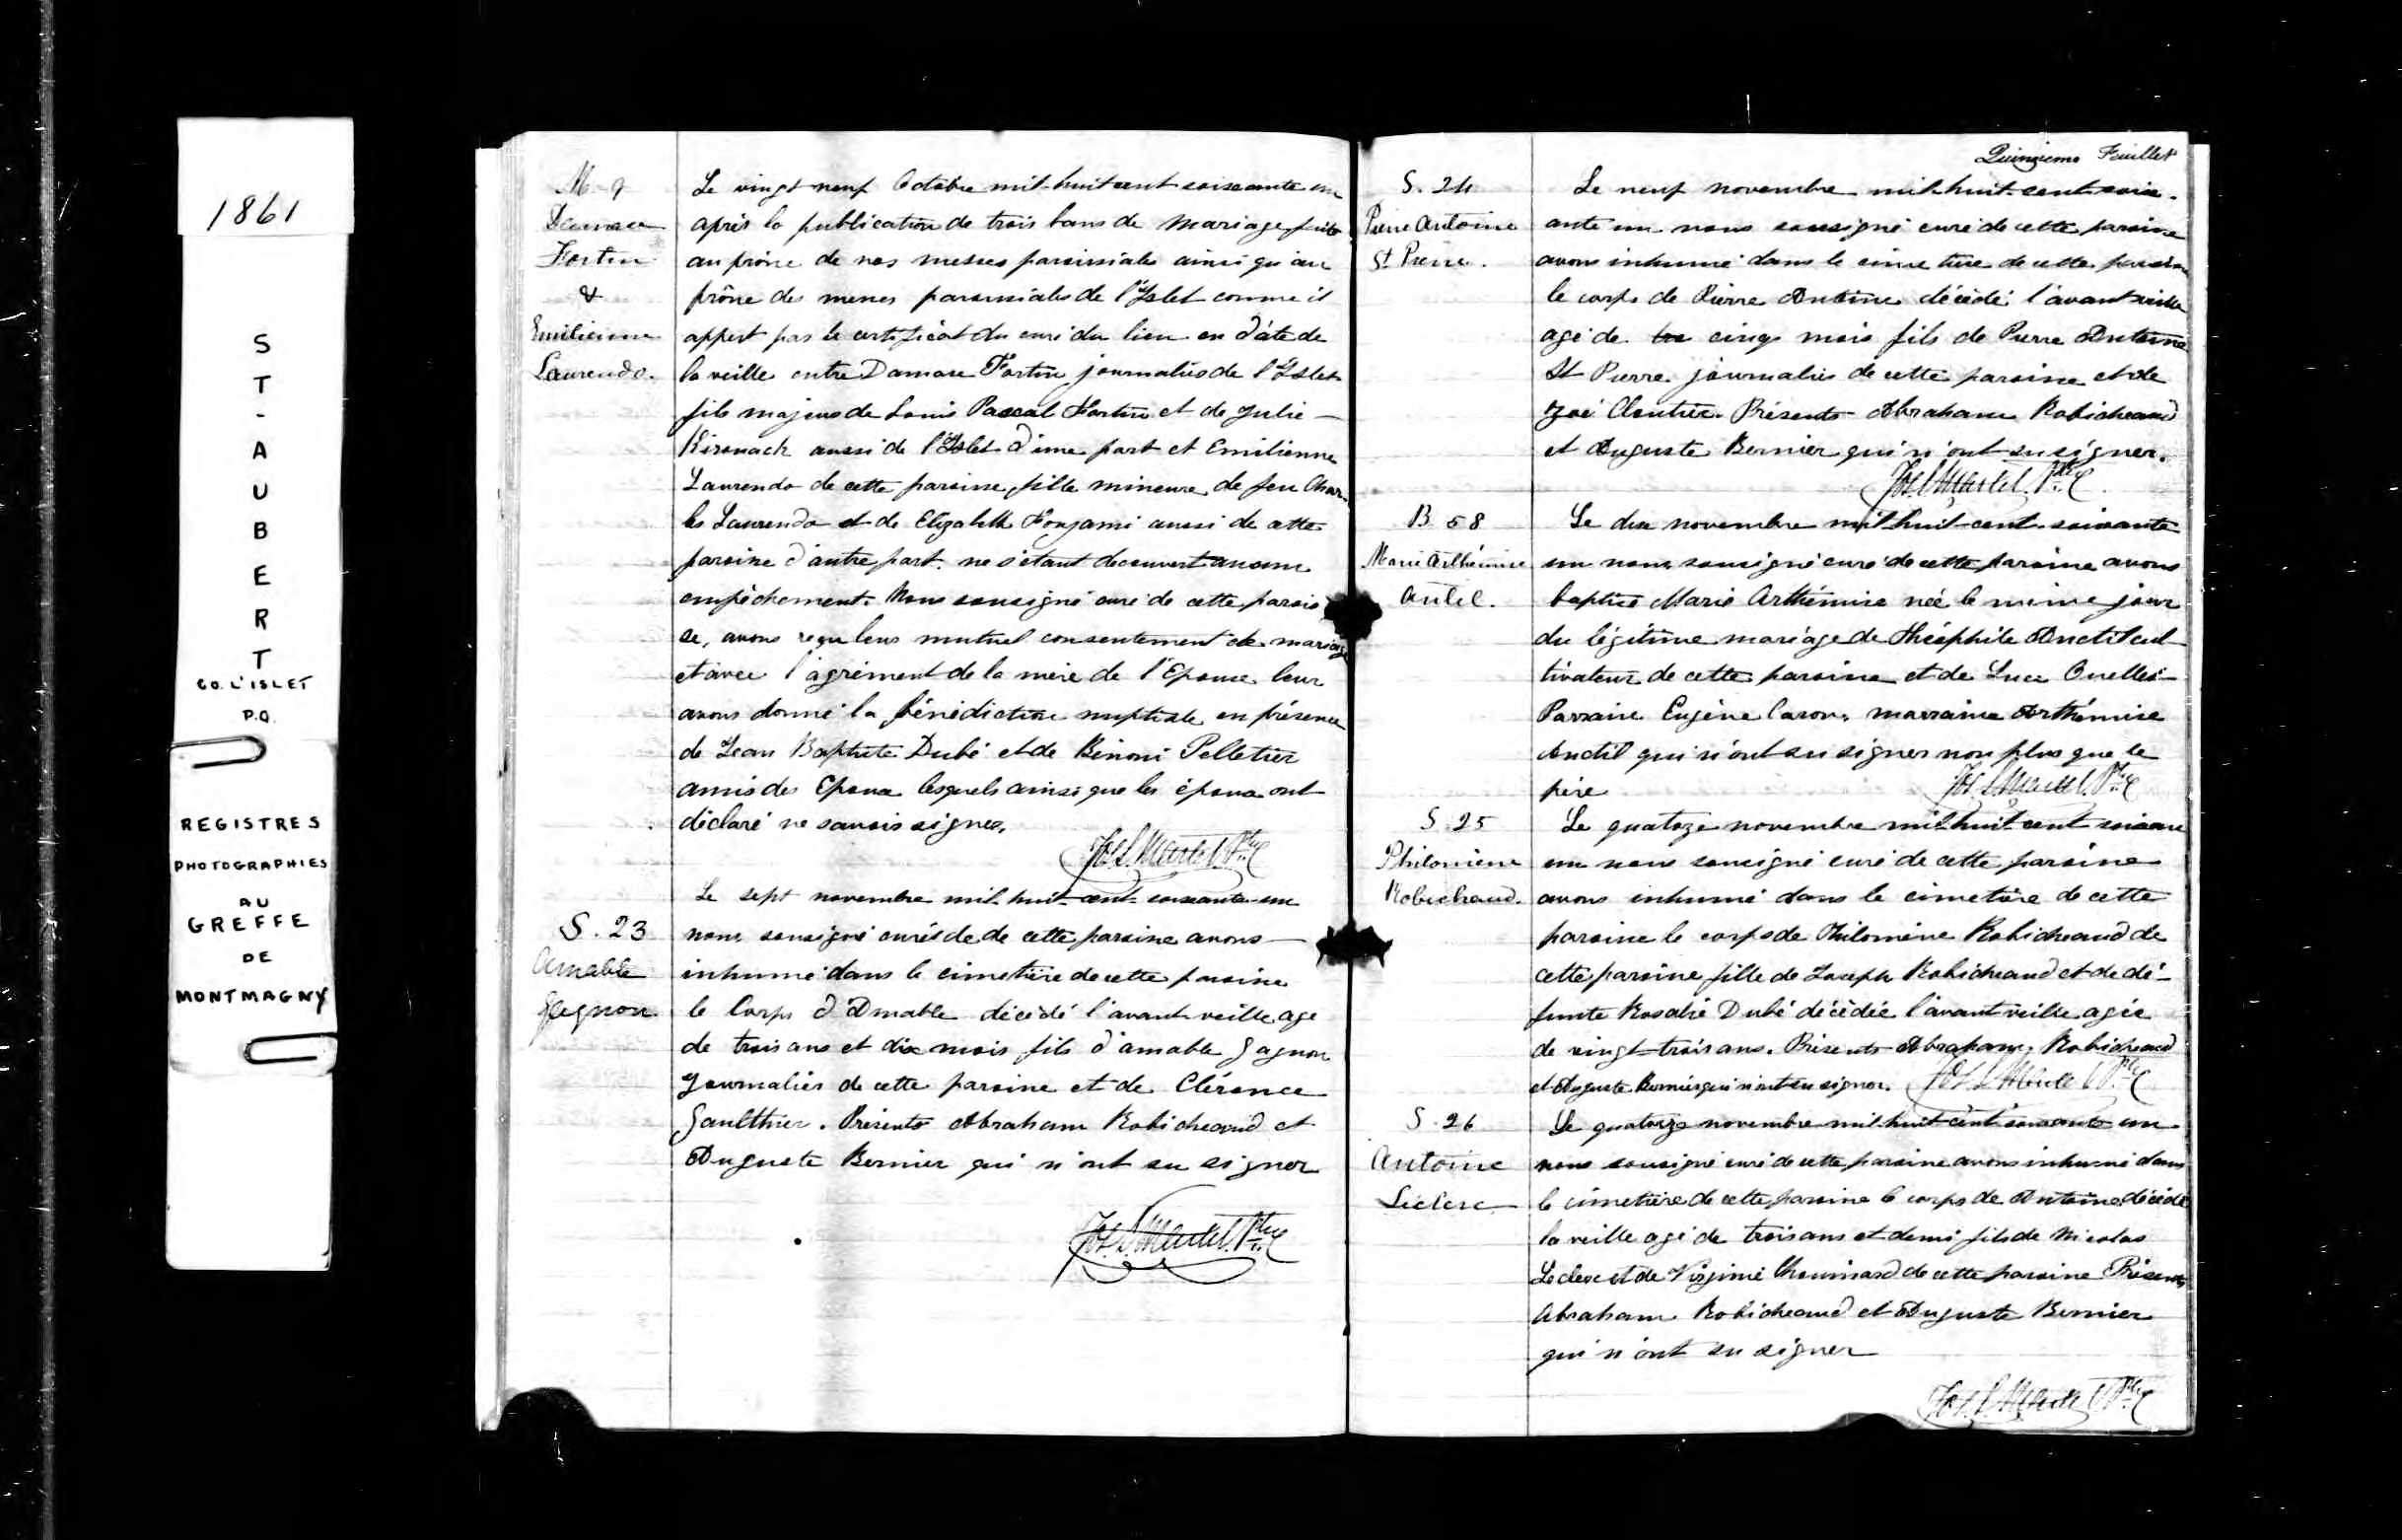 1861
ST-AUBERT
CO. L'ISLET
P.Q.
REGISTRES
PHOTOGRAPHIES
AU
GREFFE
DE
MONTMAGNY
M. 9
Damase
Fortin
&
Emilienne
Laurendo.
Le vingt neuf Octobre mil-huit cent soixante un
après la publication de trois bans de Mariage faite
au prône de nos messes paroissiales ainsi qu'au
prône des messes paroissiales de l'Islet comme il
appert par le certificat du curé du lieu en date de
la veille entre Damase Fortin journalier de l'Islet
fils majeur de Louis Pascal Fortin et de Julie
Kirouack aussi de l'Islet d'une part et Emilienne
Laurendo de cette paroisse, fille mineure de feu Char-
les Laurendo et de Elizabeth Fongami aussi de cette
paroisse d'autre part. ne s'étant decouvert aucun
empêchement. Nous sousigné curé de cette parois
se, avons reçu leur mutuel consentement de mariage
et avec l'agrément de la mère de l'Epouse leur
avons donné la bénédiction nuptiale en présence
de Jean Baptiste Dubé et de Bénoni Pelletier
amis des Epoux lesquels ainsi que les époux ont
déclaré ne savoir signer.
Jos. S. Martel Ptre
S. 23
Amable
Gagnon.
Le sept novembre mil-huit-cent-soixante-un
nous sousigné curé de de cette paroisse avons
inhumé dans le cimetière de cette paroisse
le Corps d'Amable décédé l'avant-veille age
de trois ans et dix mois fils d'amable Gagnon
Journalier de cette paroisse et de Clérence
Gaulthier. Présents Abraham Robicheaud et
Auguste Bernier qui n'ont su signer
Jos. S. Martel. Ptre
Quinzieme Feuillet
S. 24
Pierre Antoine
St. Pierre.
Le neuf novembre mil-huit-cent-soix-
ante un nous sousigné curé de cette paroisse
avons inhumé dans le cimetière de cette paroisse
le corps de Pierre Antoine décédé l'avant veille
agé de cinq mois fils de Pierre Antoine
St Pierre journalier de cette paroisse et de
Zoé Cloutier. Présents Abraham Robicheaud
et Auguste Bernier qui n'ont su signer.
Jos. S. Martel. Ptre
B 58
Marie Arthémise
Antil.
Le dix novembre mil-huit-cent-soixante
un nous sousigné curé de cette paroisse avons
baptisé Marie Arthémise née le même jour
du légitime mariage de Théophile Anctil cul
tivateur de cette paroisse et de Luce Ouellet
Parrain Eugène Caron. marraine Arthémise
Anctil qui n'ont su signer non plus que le
père
Jos. S. Martel. Ptre
S. 25
Philomène
Robichaud.
Le quatorze novembre mil-huit cent soixante
un nous sousigné curé de cette paroisse
avons inhumé dans le cimetière de cette
paroisse le corps de Philomène Robicheaud de
cette paroisse fille de Joseph Robicheaud et de dé-
funte Rosalie Dubé décédée l'avant veille agée
de vingt-trois ans. Présents Abraham Robicheaud
et Auguste Bernier qui n'ont su signer. Jos. S. Martel Ptre
S. 26
Antoine
Leclerc
Le quatorze novembre mil-huit-cent soixante un
nous sousigné curé de cette paroisse avons inhumé dans
le cimetière de cette paroisse le corps de Antoine décédé
la veille agé de trois ans et demi fils de Nicolas
Leclerc et de Virginie Chouinard de cette paroisse Présents
Abraham Robicheaud et Auguste Bernier
qui n'ont su signer
Jos. S. Martel Ptre